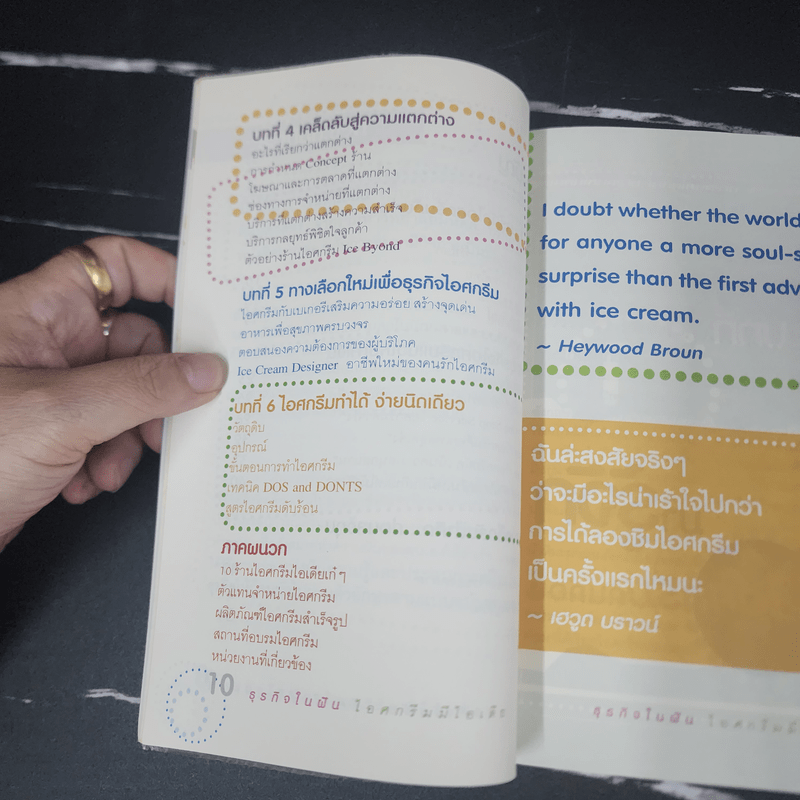 บทที่ 4 เคล็ดลับสู่ความแตกต่าง
อะไรที่เรียกว่าแตกต่าง
การกำหนด Concept ร้าน
โฆษณาและการตลาดที่แตกต่าง
ช่องทางการจำหน่ายที่แตกต่าง
บริการที่แตกต่างสร้างความสำเร็จ
บริการกลยุทธ์พิชิตใจลูกค้า
ตัวอย่างร้านไอศกรีม Ice Byond
บทที่ 5 ทางเลือกใหม่เพื่อธุรกิจไอศกรีม
ไอศกรีมกับเบเกอรีเสริมความอร่อย สร้างจุดเด่น
อาหารเพื่อสุขภาพครบวงจร
ตอบสนองความต้องการของผู้บริโภค
Ice Cream Designer อาชีพใหม่ของคนรักไอศกรีม
บทที่ 6 ไอศกรีมทำได้ ง่ายนิดเดียว
วัตถุดิบ
อุปกรณ์
ขั้นตอนการทำไอศกรีม
เทคนิค DOS and DONTS
สูตรไอศกรีมดับร้อน
ภาคผนวก
10 ร้านไอศกรีมไอเดียเก๋ ๆ
ตัวแทนจำหน่ายไอศกรีม
ผลิตภัณฑ์ไอศกรีมสำเร็จรูป
สถานที่อบรมไอศกรีม
หน่วยงานที่เกี่ยวข้อง
10 ธุรกิจในฝัน ไอศกรีมมีไอเดีย
I doubt whether the world
for anyone a more soul-s
surprise than the first adv
with ice cream.
~ Heywood Broun
ฉันล่ะสงสัยจริงๆ
ว่าจะมีอะไรน่าเร้าใจไปกว่า
การได้ลองชิมไอศกรีม
เป็นครั้งแรกไหมนะ
~ เฮวูด บราวน์
ธุรกิจในฝัน ไอศกรีมมี